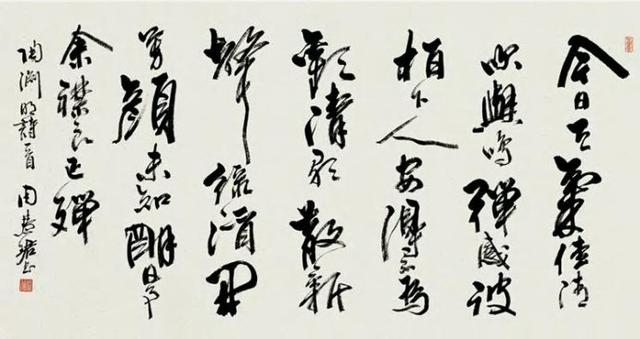 今日天氣佳清
吹與鳴彈感彼
柏下人安得不為
歡清歌散新
聲綠酒開
芳顏未知明日事
余襟良已殫
陶渊明詩一首 周慧珺书